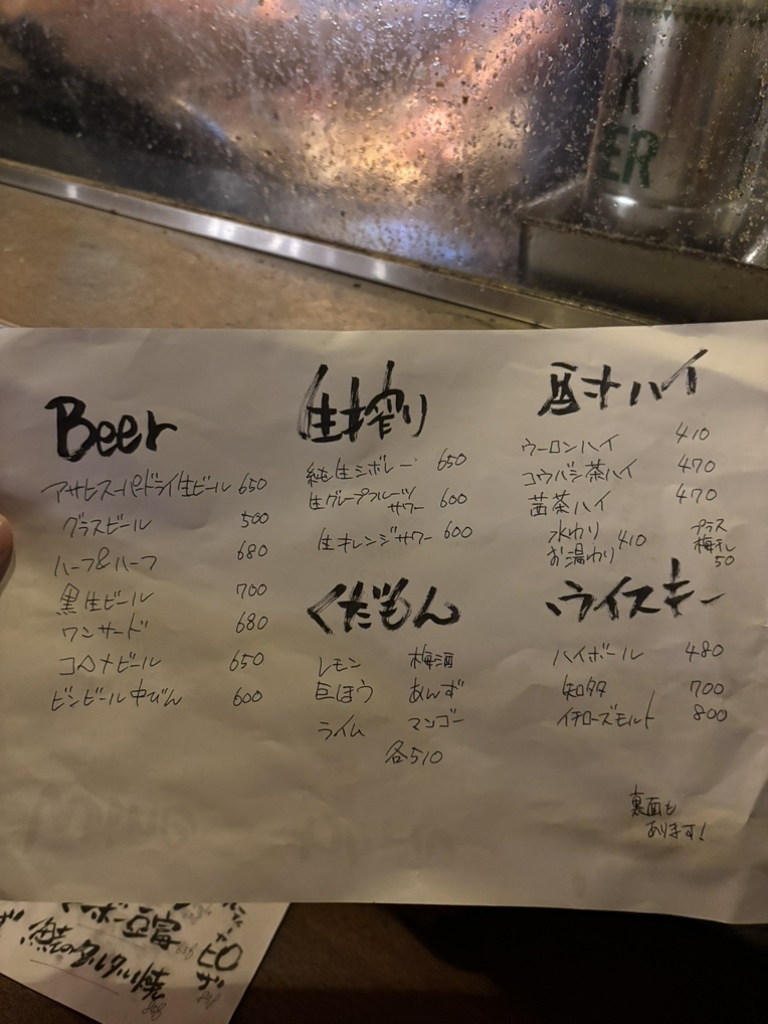 ER
Beer
アサヒスーパードライ生ビール 650
グラスビール 500
ハーフ&ハーフ 680
黒生ビール 700
ワンサード 680
コロナビール 650
ビンビール中びん 600
生搾り
純生シボレー 650
生グレープフルーツサワー 600
生オレンジサワー 600
くだもん
レモン 梅酒
巨ほう あんず
ライム マンゴー
各510
酎ハイ
ウーロンハイ 410
コウバシ茶ハイ 470
茜茶ハイ 470
水わり
お湯わり 410
プラス
梅干し
50
ウイスキー
ハイボール 480
知多 700
イチローズモルト 800
裏面も
あります!